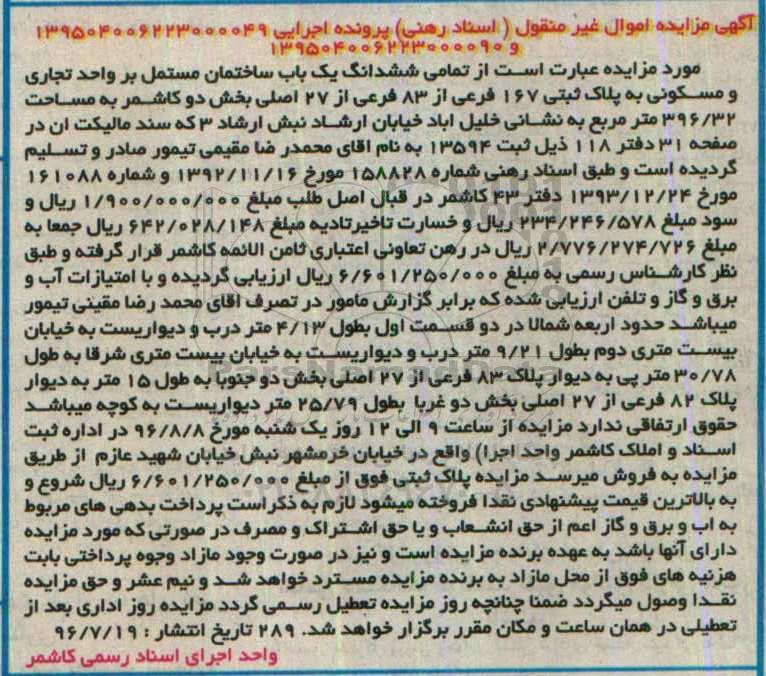 آگهی مزایده اموال غیر منقول ( اسناد رهنی) پرونده اجرایی ۱۳۹۵۰۴۰۰۶۲۲۳۰۰۰۰۴۹
و ۱۳۹۵۰۴۰۰۶۲۲۳۰۰۰۰۹۰
مورد مزایده عبارت است از تمامی ششدانگ یک باب ساختمان مستمل بر واحد تجاری
و مسکونی به پلاک ثبتی ۱۶۷ فرعی از ۸۳ فرعی از ۲۷ اصلی بخش دو کاشمر به مساحت
۳۹۶/۳۲ متر مربع به نشانی خلیل اباد خیابان ارشاد نبش ارشاد ۳ که سند مالیکت ان در
صفحه ۳۱ دفتر ۱۱۸ ذیل ثبت ۱۳۵۹۴ به نام اقای محمدر ضا مقیمی تیمور صادر و تسلیم
گردیده است و طبق اسناد رهنی شماره ۱۵۸۸۲۸ مورخ ۱۳۹۲/۱۱/۱۶ و شماره ۱۶۱۰۸۸
مورخ ۱۳۹۳/۱۲/۲۴ دفتر ۴۳ کاشمر در قبال اصل طلب مبلغ ۱/۹۰۰/۰۰۰/۰۰۰ ریال و
سود مبلغ ۲۳۴/۲۴۶/۵۷۸ ریال و خسارت تاخیرتادیه مبلغ ۶۴۲/۰۲۸/۱۴۸ ریال جمعا به
مبلغ ۲/۷۷۶/۲۷۴/۷۲۶ ریال در رهن تعاونی اعتباری ثامن الائمه کاشمر قرار گرفته و طبق
نظر کارشناس رسمی به مبلغ ۶/۶۰۱/۲۵۰/۰۰۰ ریال ارزیابی گردیده و با امتیازات آب و
برق و گاز و تلفن ارزیابی شده که برابر گزارش مامور در تصرف اقای محمد رضا مقینی تیمور
میباشد حدود اربعه شمالا در دو قسمت اول بطول ۴/۱۳ متر درب و دیواریست به خیابان
بیست متری دوم بطول ۹/۲۱ متر درب و دیواریست به خیابان بیست متری شرقا به طول
۳۰/۷۸ متر پی به دیوار پلاک ۸۳ فرعی از ۲۷ اصلی بخش دو جنوبا به طول ۱۵ متر به دیوار
پلاک ۸۲ فرعی از ۲۷ اصلی بخش دو غربا بطول ۲۵/۷۹ متر دیواریست به کوچه میباشد
حقوق ارتفاقی ندارد مزایده از ساعت ۹ الی ۱۲ روز یک شنبه مورخ ۹۶/۸/۸ در اداره ثبت
اسناد و املاک کاشمر واحد اجرا) واقع در خیابان خرمشهر نبش خیابان شهید عازم از طریق
مزایده به فروش میرسد مزایده پلاک ثبتی فوق از مبلغ ۶/۶۰۱/۲۵۰/۰۰۰ ریال شروع و
به بالاترین قیمت پیشنهادی نقدا فروخته میشود لازم به ذکراست پرداخت بدهی های مربوط
به اب و برق و گاز اعم از حق انشعاب و یا حق اشتراک و مصرف در صورتی که مورد مزایده
دارای آنها باشد به عهده برنده مزایده است و نیز در صورت وجود مازاد وجوه پرداختی بابت
هزنیه های فوق از محل مازاد به برنده مزایده مسترد خواهد شد و نیم عشر و حق مزایده
نقدا وصول میگردد ضمنا چنانچه روز مزایده تعطیل رسمی گردد مزایده روز اداری بعد از
تعطیلی در همان ساعت و مکان مقرر برگزار خواهد شد. ۲۸۹ تاریخ انتشار : ۹۶/۷/۱۹
واحد اجرای اسناد رسمی کاشمر